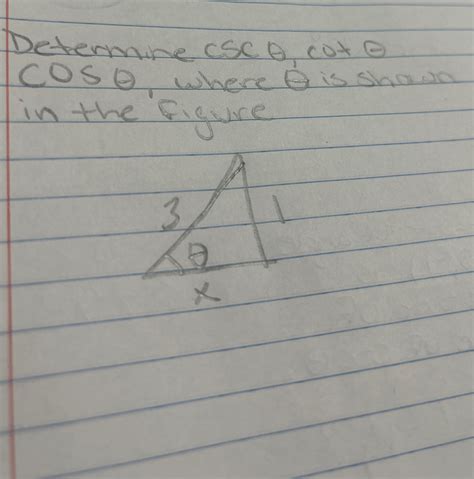 Determine csc θ, cot θ
cos θ, where θ is shown
in the figure
3
1
θ
x